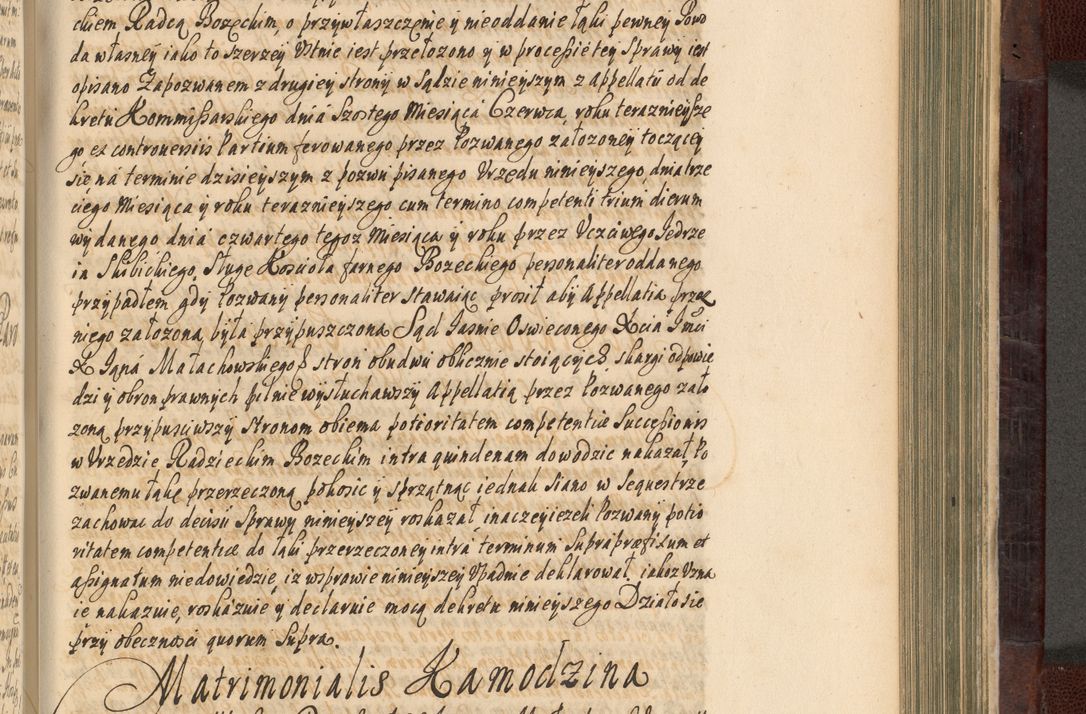 ckiem Radcą Bozeckim, o przywłaszczenie y nieoddanie łąki pewney Powo
da własney iako to szerzey Vstnie iest przełozono y w processie tey Sprawy iest
opisano Zapozwanem z drugiey strony w Sądzie ninieyszym z Appellatii od de
kretu Kommissarskiego dnia Szostego Miesiąca Czerwca, roku terazniejsze
go ex controversiis Partium ferowanego przez Pozwanego załozoney toczącey
się na terminie dzisieyszym z pozwu pisanego Vrzędu ninieyszego, dnia trze
ciego Miesiąca y roku terazniejszego cum termino competenti trium dierum
wydanego dnia czwartego tegoz Miesiąca y roku przez Vczciwego Jędrze
ia Skibickiego, Sługę Koscioła farnego Bozeckiego personaliter oddanego
przypadłem gdy Pozwany personaliter stawaiąc prosił aby Appellatia przez
niego załozona, była przypuszczona Sąd Jasnie Oswieconego Xcia Jmci
X Jana Małachowskiego B stron obudwu oblicznie stoiących, skargi odpowie
dzi y obron prawnych pilnie wysłuchawszy Appellatią przez Pozwanego zało
zoną przypusciwszy Stronom obiema potioritatem competentiae Successionis
w Vrzedzie Radzieckim Bozeckim intra quindenam dowodzic nakazał, Po
zwanemu łąkę przerzeczoną pokosic y sprzątnąc iednak siano w Sequestrze
zachowac do decisii Sprawy ninieyszey roskazał, inaczey iezeli Pozwany potio
ritatem competentiae do łąki przerzeczoney intra terminum supra praefixum et
assignatum niedowiedzie, iz w sprawie ninieyszey Vpadnie deklarował, iakoz Vzna
ie nakazuie, roskazuie y declaruie mocą dekretu ninieyszego Działo się
przy obecznosci quorum Supra.
Matrimonialis Kamodzina